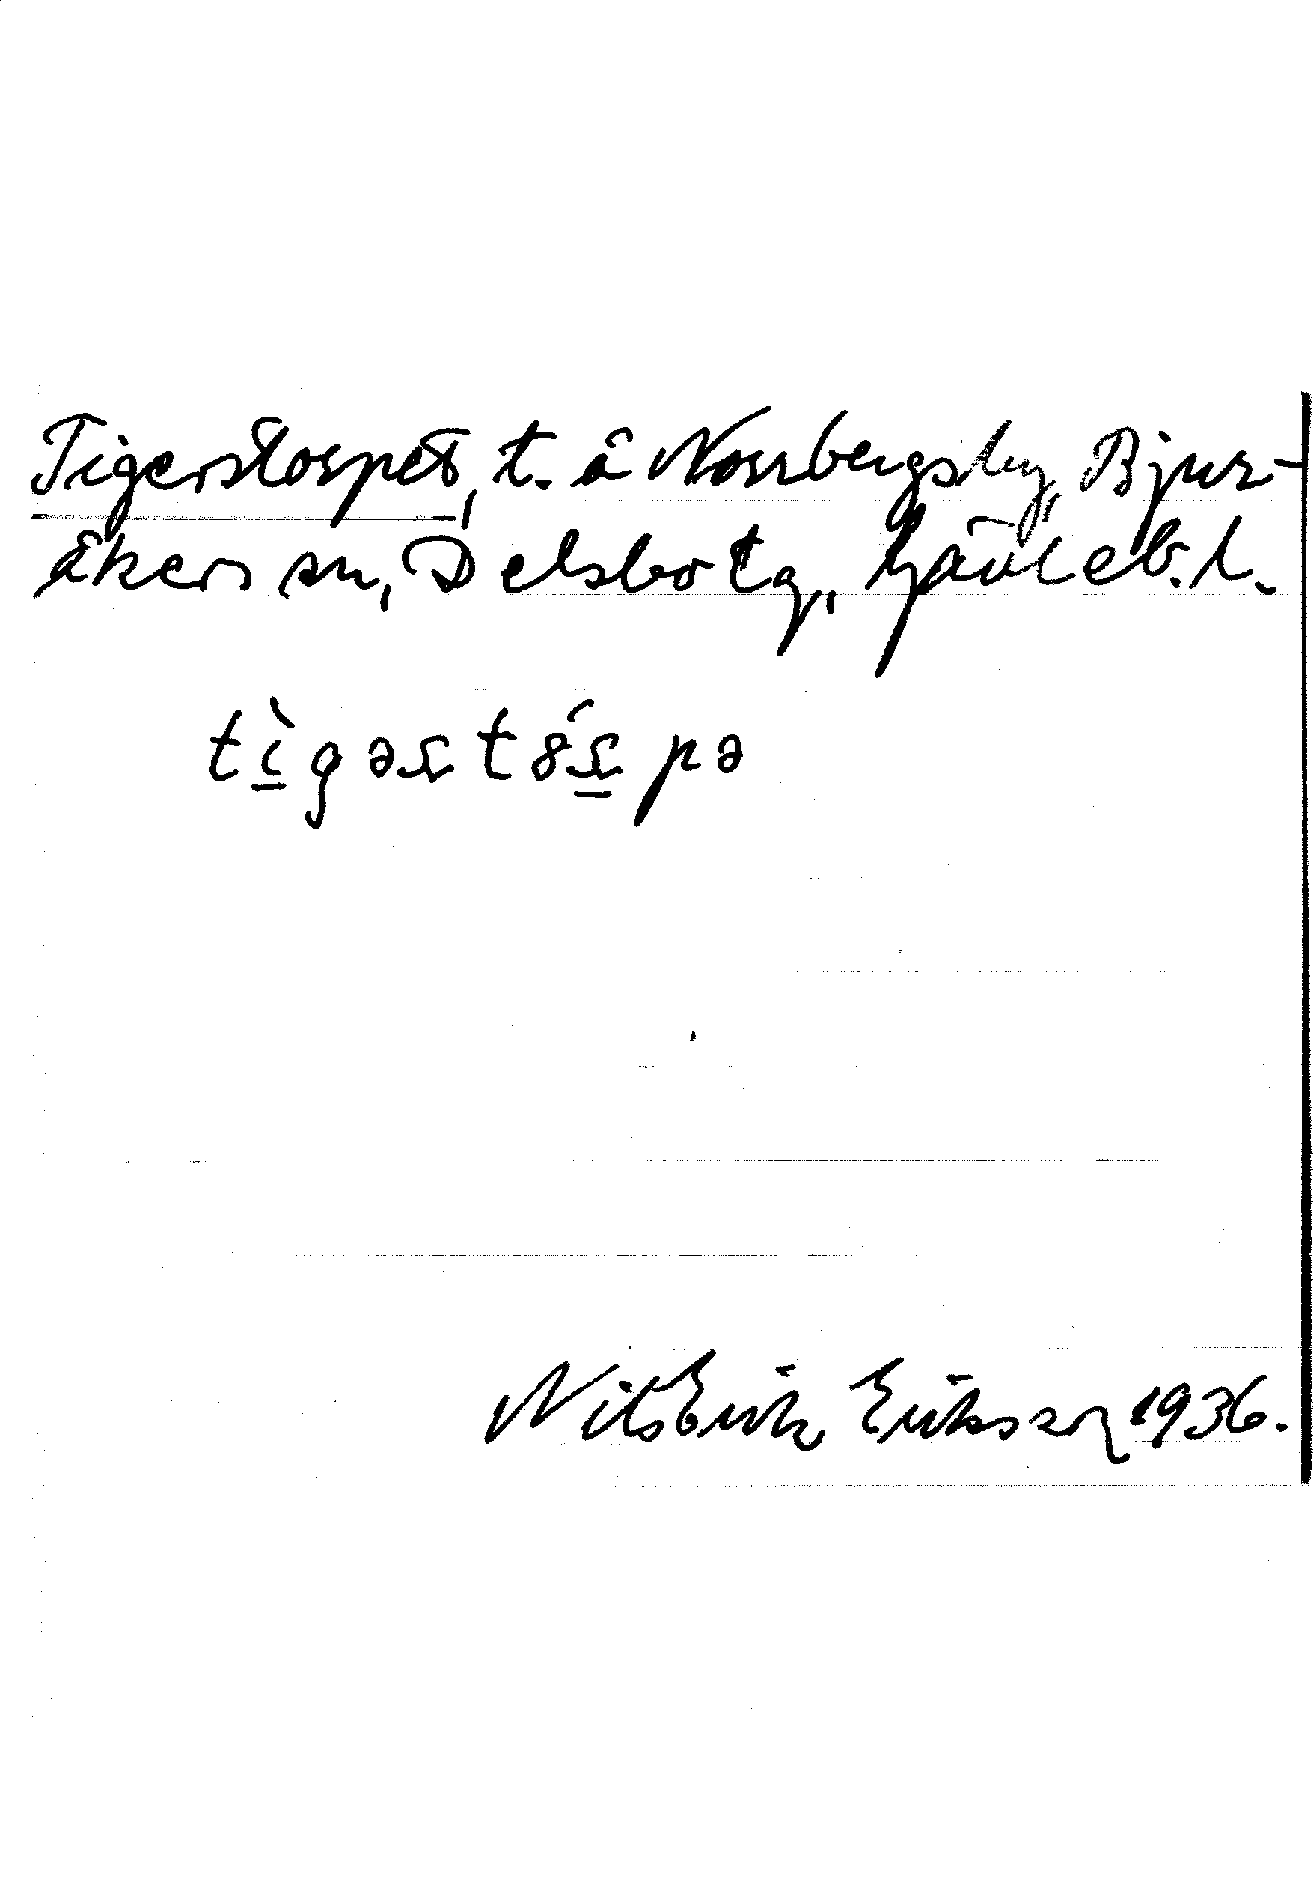 Tigerstorpet, t. å Norrbergsby, Bjur-
åkers sn, Delsbo tg, Gävleb. l.
tìgəstós̲pə
Nils Erik Eriksson 1936.